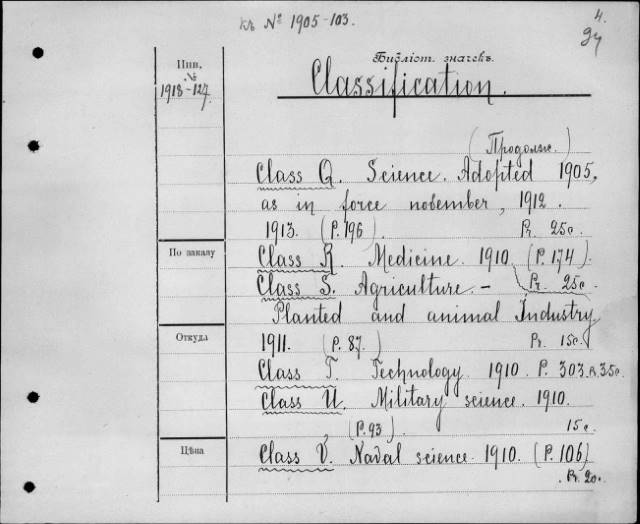 къ № 1905-103.
4.
Инв.
№
1918-127.
Библіот. значекъ.
Classification.
(Продолж.)
Class Q. Science. Adopted 1905,
as in force nobember, 1912.
1913. (P. 196). Pr. 25c.
По заказу
Class R. Medicine. 1910 (P. 174).
Pr. 25c.
Class S. Agriculture. –
Planted and animal Industry
Откуда
1911. (P. 87.) Pr. 15c.
Class T. Technology. 1910. P. 303. Pr. 35c.
Class U. Military science. 1910.
(P. 93). 15c.
Цѣна
Class V. Nadal science. 1910. (P. 106)
. Pr. 20c.